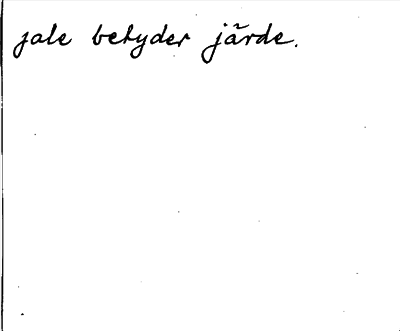 jale betyder järde.